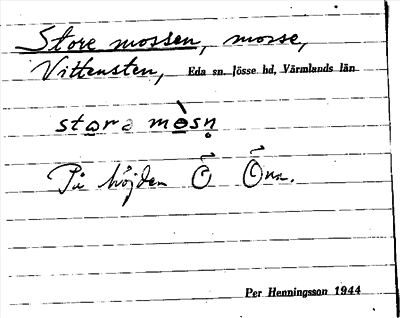 Store mossen, mosse,
Vittensten, Eda sn. Jösse hd, Värmlands län
På höjden Ö Önn.
Per Henningsson 1944